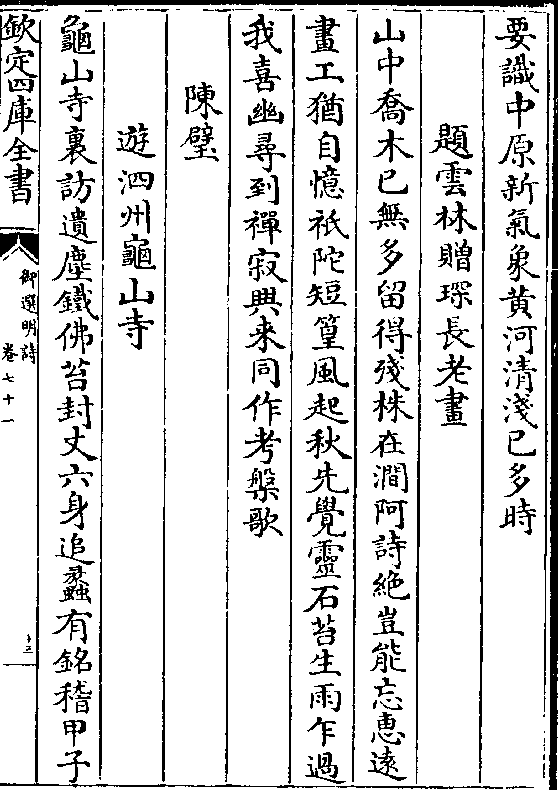 要識中原新氣象黄河清淺已多時
題雲林贈琛長老畫
山中喬木已無多留得殘株在澗阿詩絶豈能忘恵逺
畫工猶自憶祇陀短篁風起秋先覺靈石苔生雨乍過
我喜幽尋到禪寂興来同作考槃歌
陳璧
遊泗州龜山寺
龜山寺裏訪遺塵鐵佛苔封丈六身追蠡有銘稽甲子
欽定四庫全書
御選明詩
卷七十一
十三